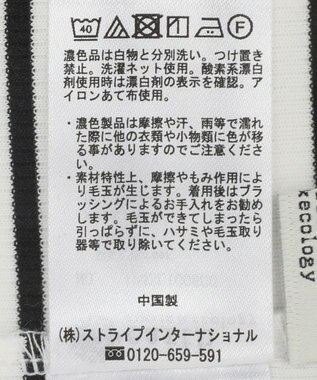 40 F
濃色品は白物と分別洗い。つけ置き
禁止。洗濯ネット使用。酸素系漂白
剤使用時は漂白剤の表示を確認。ア
イロンあて布使用。
・濃色製品は摩擦や汗、雨等で濡れ
た際に他の衣類や小物類に色が移
る事がありますのでご注意くださ
い。
・素材特性上、摩擦やもみ作用によ
り毛玉が生じます。着用後はブラ
ッシングによるお手入れをお勧め
します。毛玉ができてしまったら
引っぱらずに、ハサミや毛玉取り
器等で取り除いてください。
中国製
(株)ストライプインターナショナル
0120-659-591
kecology